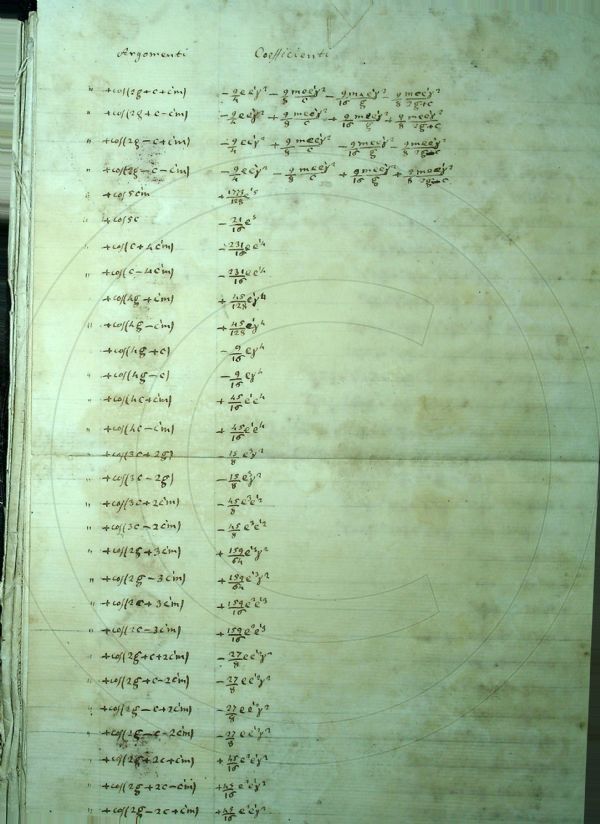 Argomenti Coefficienti
" +cos(2g+c+c'm) -9/4 ee'γ² - 9/8 mee'γ²/c - 9/16 mee'γ²/g - 9/8 mee'γ²/2g+c
" +cos(2g+c-c'm) -9/4 ee'γ² + 9/8 mee'γ²/c + 9/16 mee'γ²/g + 9/8 mee'γ²/2g+c
" +cos(2g-c+c'm) -9/4 ee'γ² + 9/8 mee'γ²/c - 9/16 mee'γ²/g - 9/8 mee'γ²/2g-c
" +cos(2g-c-c'm) -9/4 ee'γ² - 9/8 mee'γ²/c + 9/16 mee'γ²/g + 9/8 mee'γ²/2g-c
" +cos5c'm +1773/128 e'⁵
" +cos5c -21/16 e⁵
" +cos(c+4c'm) -231/16 ee'⁴
" +cos(c-4c'm) -231/16 ee'⁴
" +cos(4g+c'm) +45/128 e'γ⁴
" +cos(4g-c'm) +45/128 e'γ⁴
" +cos(4g+c) -9/16 eγ⁴
" +cos(4g-c) -9/16 eγ⁴
" +cos(4c+c'm) +45/16 e'e⁴
" +cos(4c-c'm) +45/16 e'e⁴
" +cos(3c+2g) -15/8 e³γ²
" +cos(3c-2g) -15/8 e³γ²
" +cos(3c+2c'm) -45/8 e³e'²
" +cos(3c-2c'm) -45/8 e³e'²
" +cos(2g+3c'm) +159/64 e'³γ²
" +cos(2g-3c'm) +159/64 e'³γ²
" +cos(2c+3c'm) +159/16 e²e'³
" +cos(2c-3c'm) +159/16 e²e'³
" +cos(2g+c+2c'm) -27/8 ee'²γ²
" +cos(2g+c-2c'm) -27/8 ee'²γ²
" +cos(2g-c+2c'm) -27/8 ee'²γ²
" +cos(2g-c-2c'm) -27/8 ee'²γ²
" +cos(2g+2c+c'm) +45/16 e²e'γ²
" +cos(2g+2c-c'm) +45/16 e²e'γ²
" +cos(2g-2c+c'm) +45/16 e²e'γ²